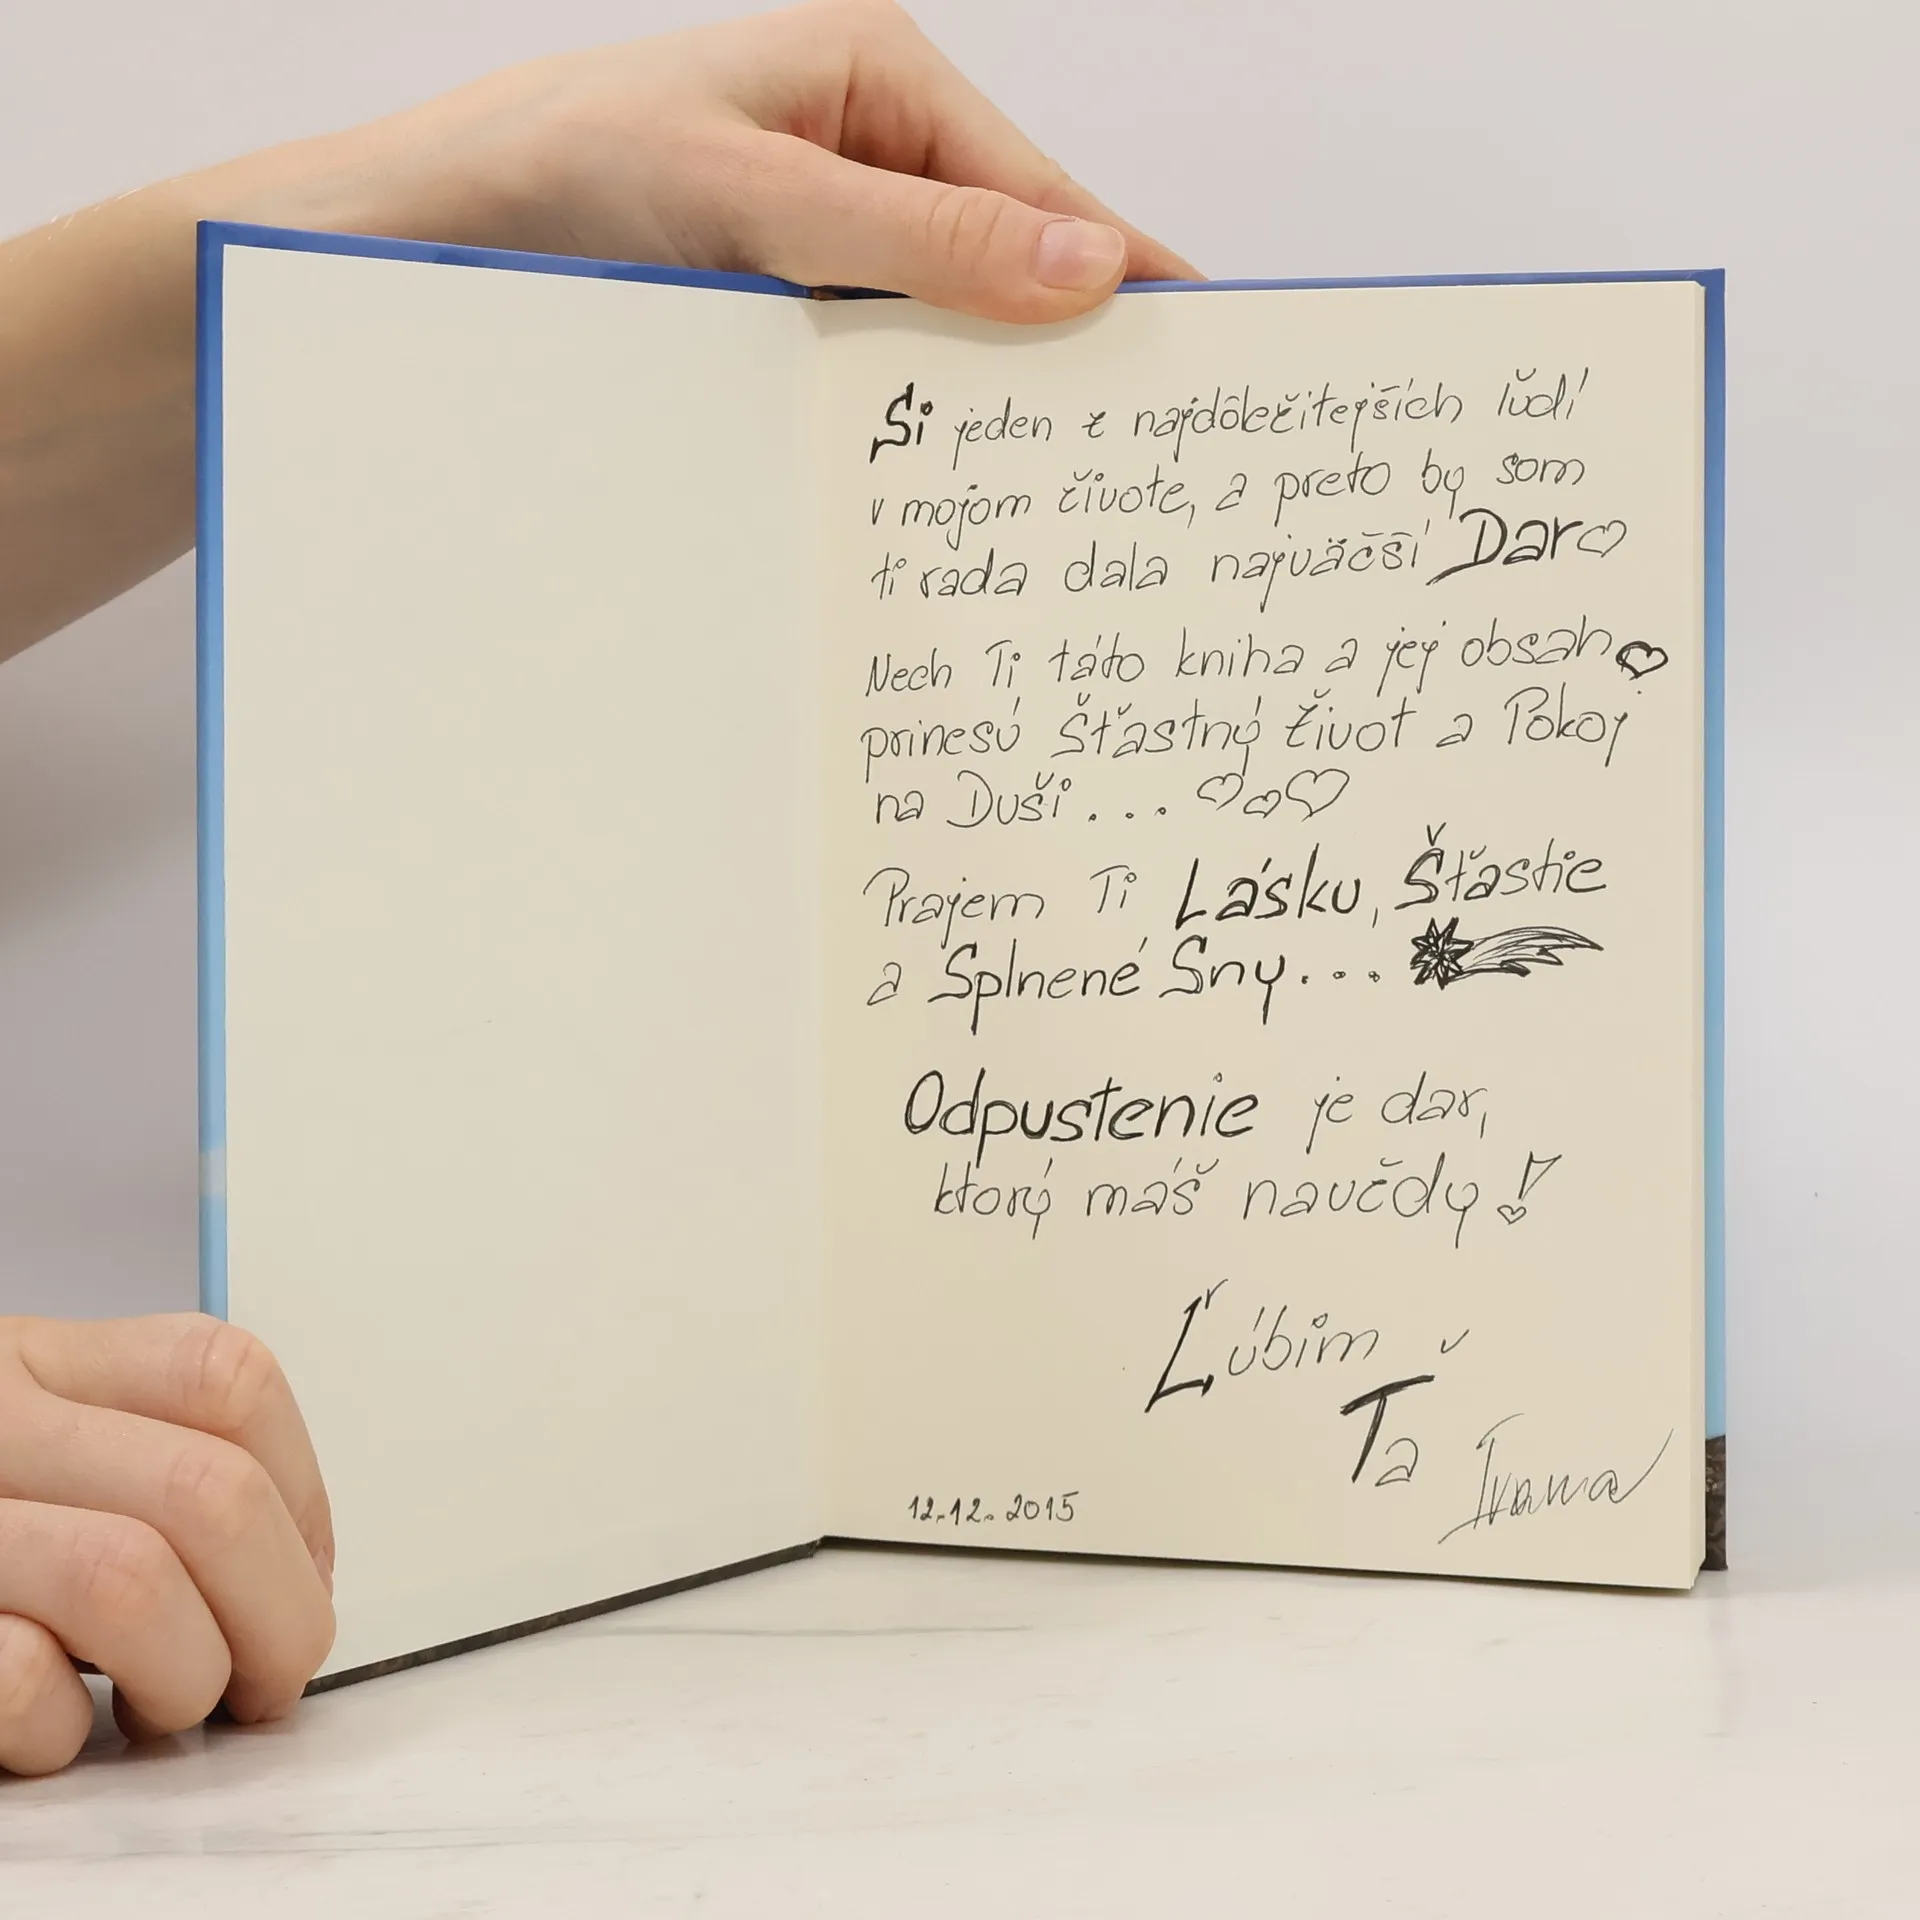 Si jeden z najdôležitejších ľudí
v mojom živote, a preto by som
ti rada dala najväčší Dar
Nech Ti táto kniha a jej obsah
prinesú Šťastný Život a Pokoj
na Duši...
Prajem Ti Lásku, Šťastie
a Splnené Sny...
Odpustenie je dar,
ktorý máš navždy!
Ľúbim
Ťa
Ivana
12.12.2015